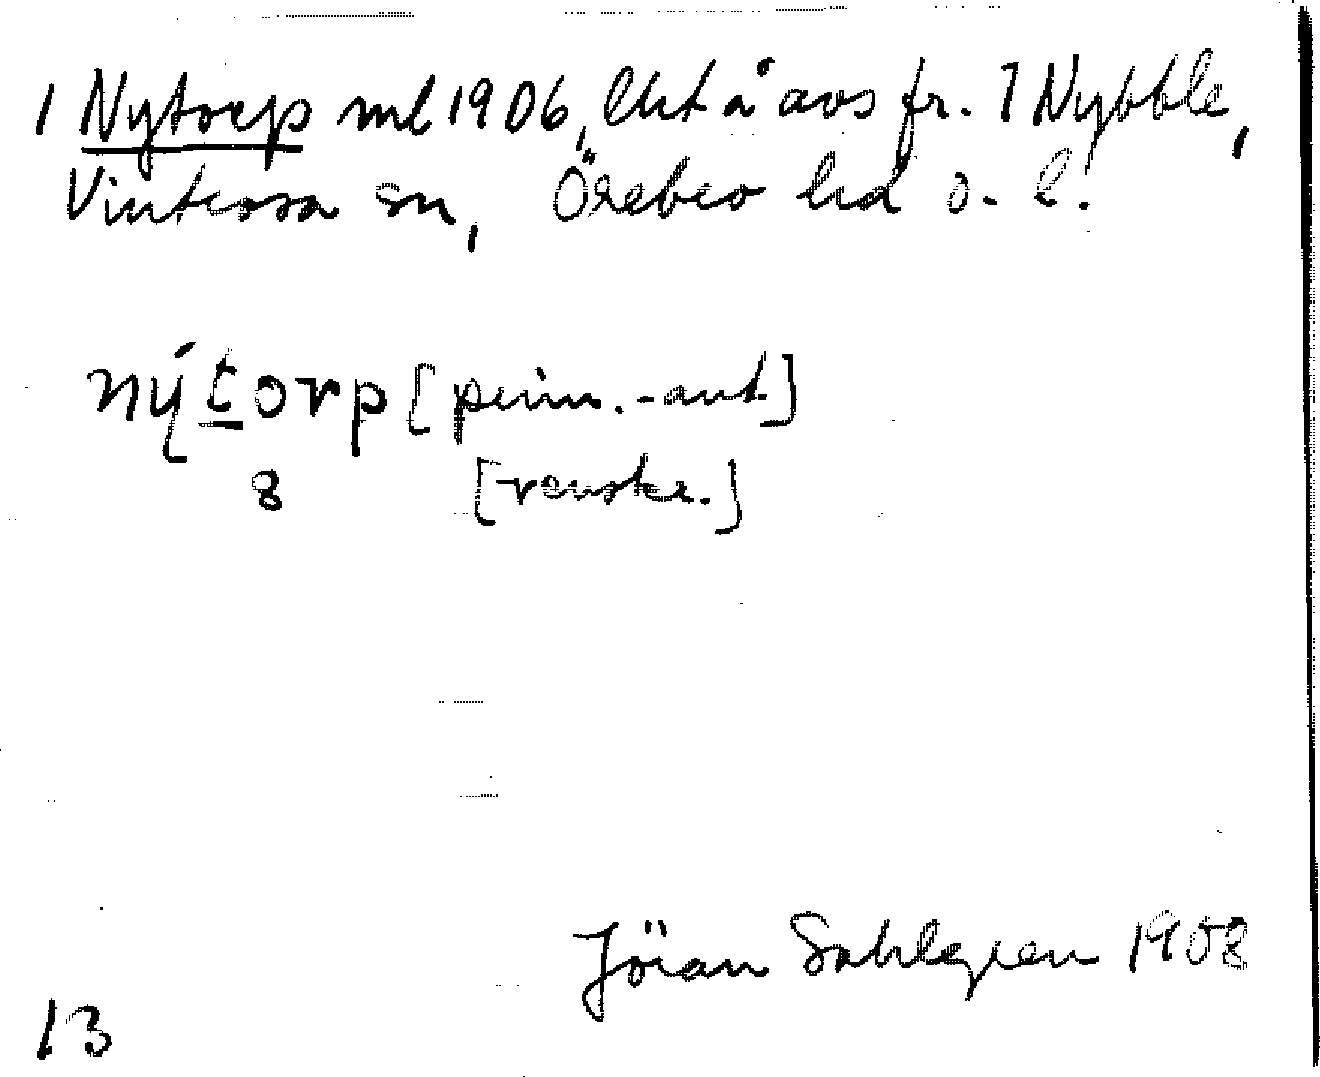 1 Nytorp ml 1906, lht å avs fr. 7 Nybble,
Vintrosa sn, Örebro hd o. l.
nýtorp [prim.-ant.]
8 [renskr.]
Jöran Sahlgren 1908
13